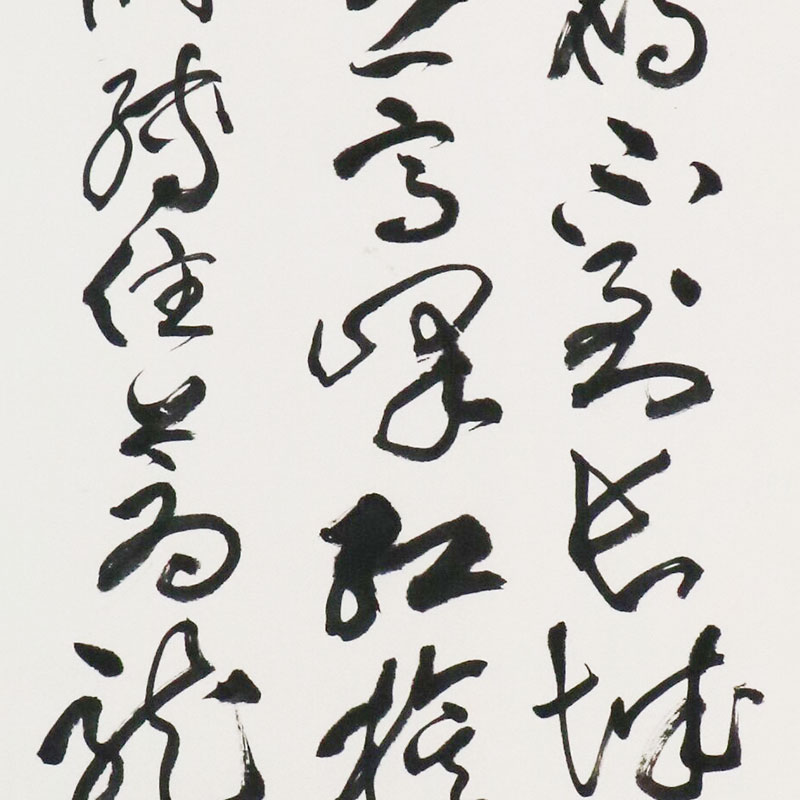 不到長城
上高峰紅旗
縛住蒼龍